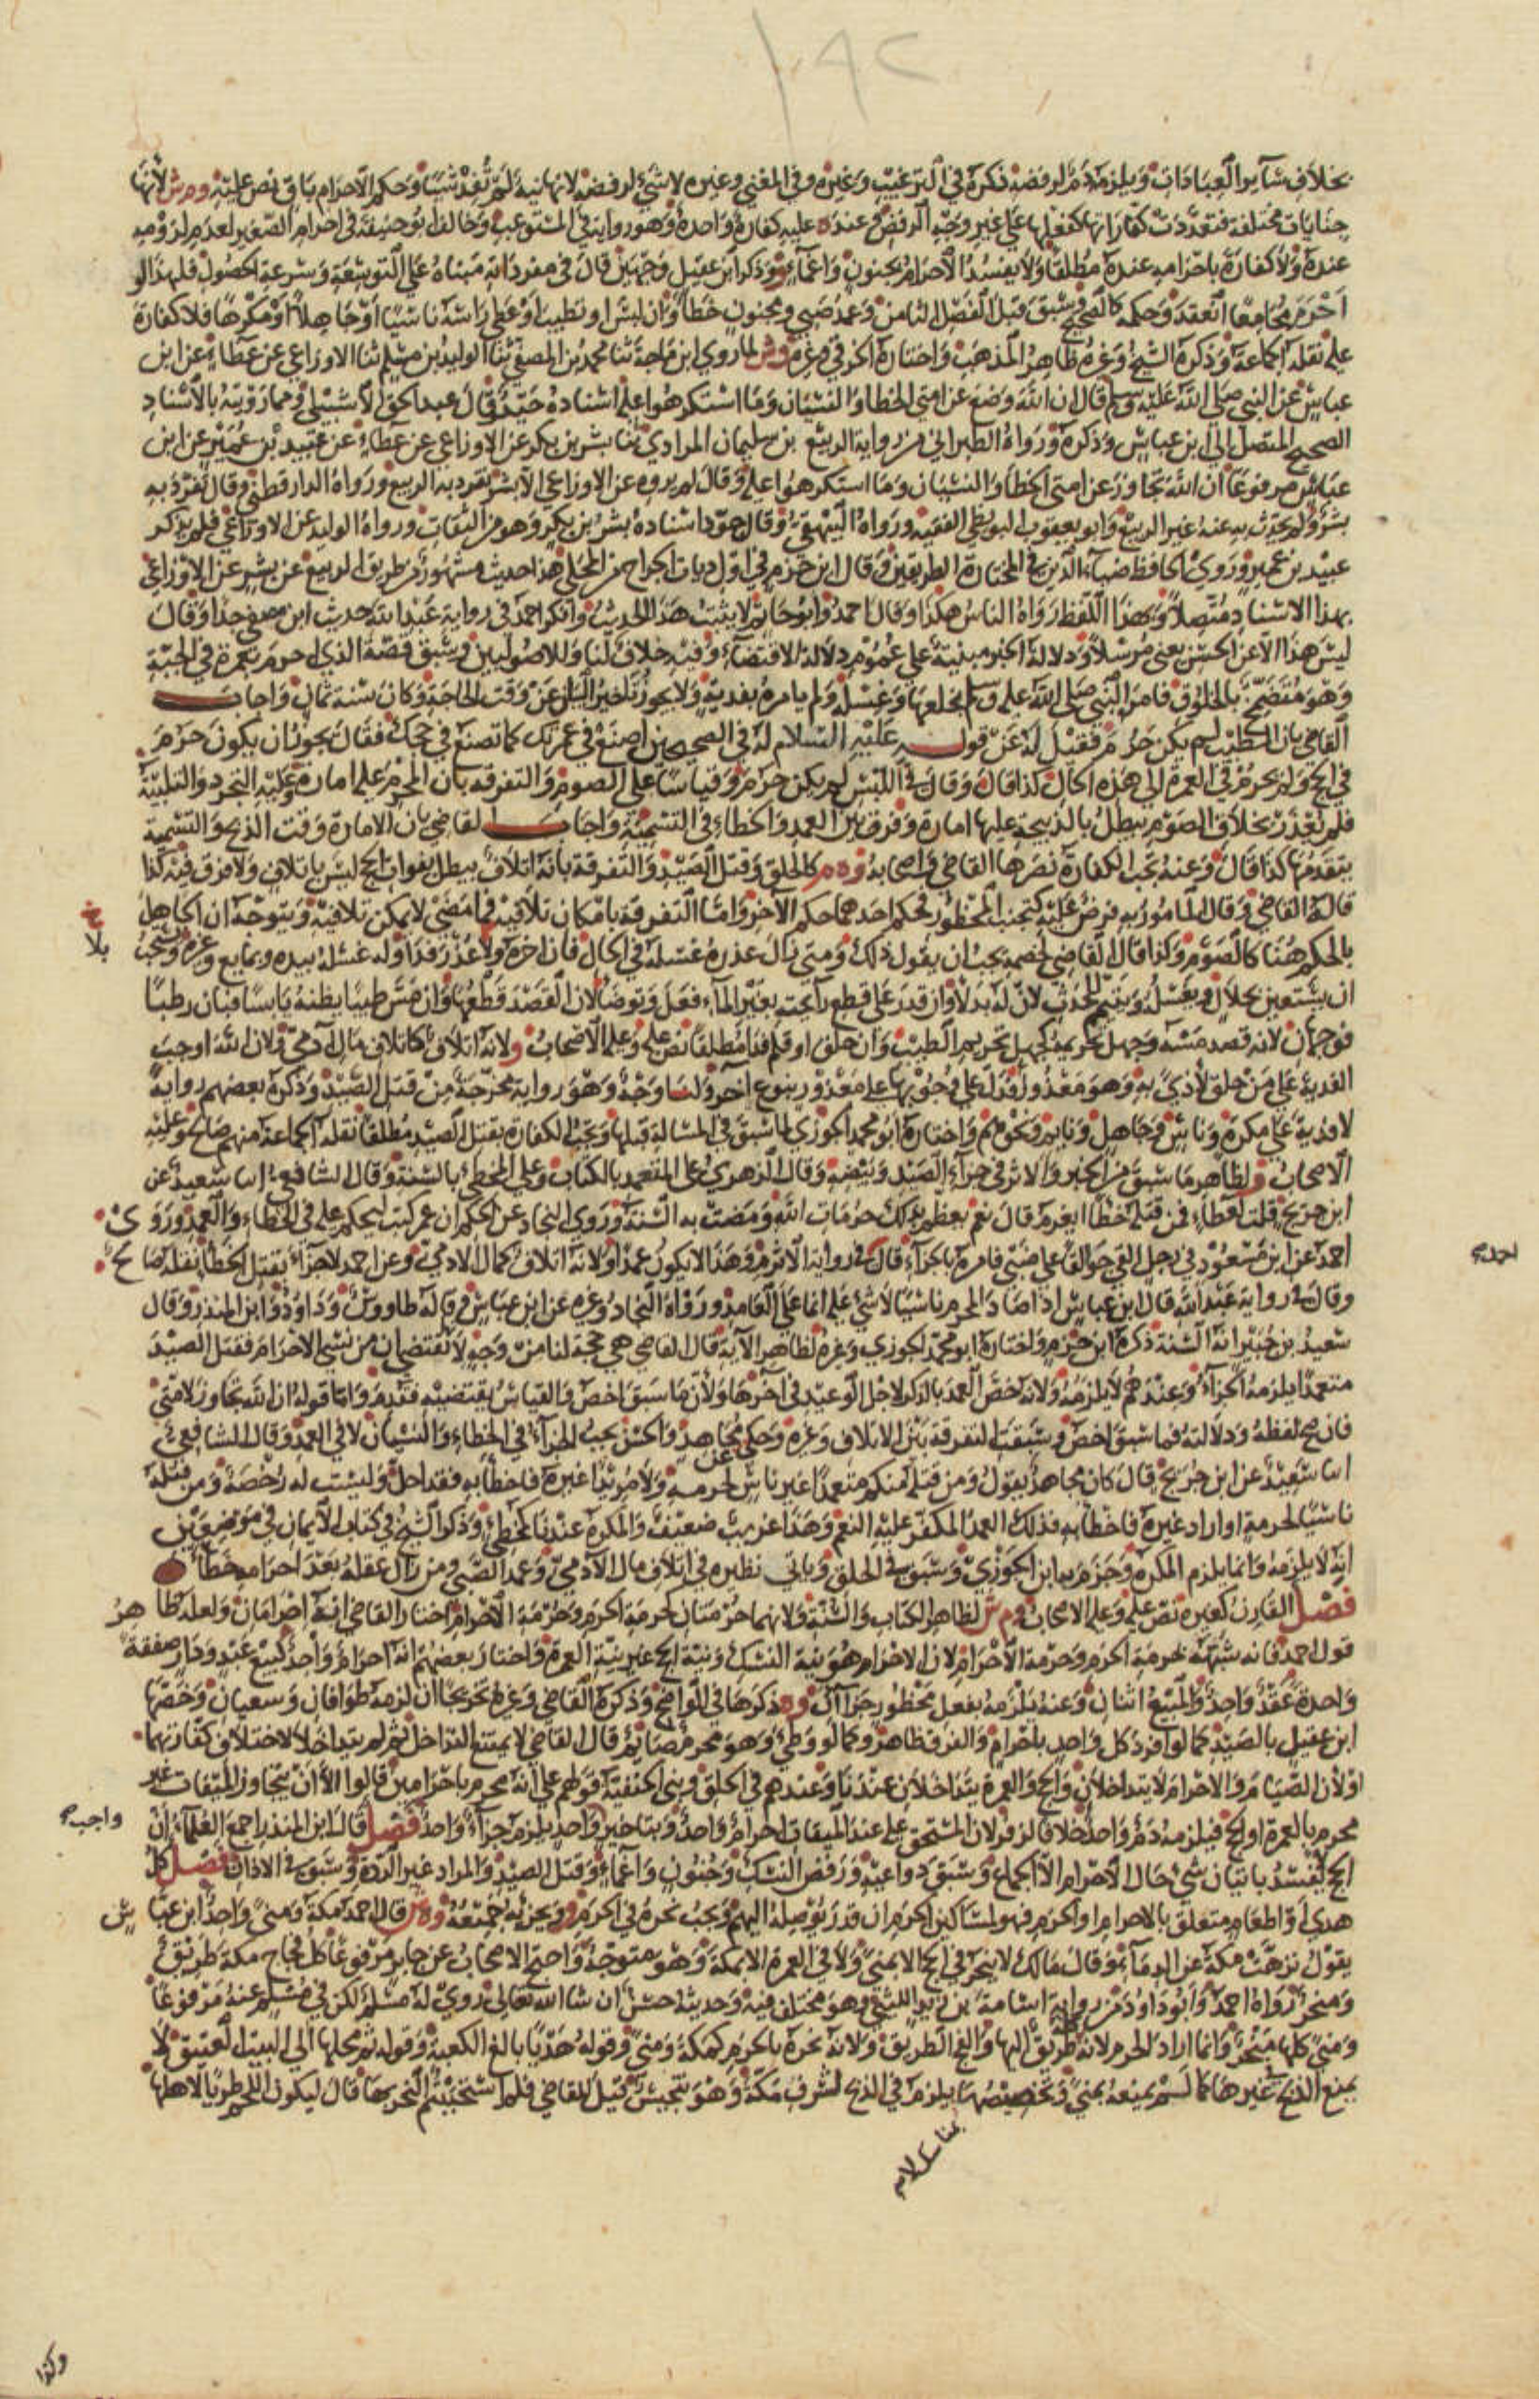 ١٩٢
بخلاف سائر العبادات ويلزمه دم لرفضه ذكره في الترغيب وغيره وفي المغني وغيره لا شيء لرفضه لانها نية لم تفد شيئا وحكم الاحرام باق نص عليه وم ش لأنها
جنايات مختلفة فتعددت كفاراتها كفعلها على غير وجه الرفض وعنده عليه كفارة واحدة وهو رواية في المستوعب وخالف ابو حنيفة في احرام الصغير لعدم لزومه
عنده ولا كفارة باحرامه عنده مطلقا ولا يفسد الاحرام بجنون واغماء وذكر ابن عقيل وجهين قال في مفرداته مبناه على التوسعة وسرعة الحصول فلهذا لو
احرم مجامعا انعقد وحكمه كالصحيح وسبق قبل الفصل الثامن وعمد صبي ومجنون خطأ وان لبس او تطيب او غطى راسه ناسيا او جاهلا او مكرها فلا كفارة
عليه نقله الجماعة وذكره الشيخ وغيره ظاهر المذهب واختاره الخرقي وغيره وش لما روي ابن ماجة ثنا محمد بن المصفى ثنا الوليد بن مسلم ثنا الاوزاعي عن عطاء عن ابن
عباس عن النبي صلى الله عليه وسلم قال ان الله وضع عن امتي الخطا والنسيان وما استكرهوا عليه اسناده جيد وقال عبد الحق الاشبيلي ومما رويته بالاسناد
الصحيح المتصل الى ابن عباس وذكره ورواه الطبراني من رواية الربيع بن سليمان المرادي ثنا بشر بن بكر عن الاوزاعي عن عطاء عن عبيد بن عمير عن ابن
عباس مرفوعا ان الله تجاوز عن امتي الخطأ والنسيان وما استكرهوا عليه وقال لم يروه عن الاوزاعي الا بشر تفرد به الربيع ورواه الدارقطني وقال تفرد به
بشر ولم يحدث به عنه غير الربيع وابو يعقوب البويطي الفقيه ورواه البيهقي وقال جود اسناده بشر بن بكر وهو من الثقات ورواه الوليد عن الاوزاعي فلم يذكر
عبيد بن عمير وروى الحافظ ضياء الدين في المختارة الطريقين وقال ابن حزم في اول ديات الجراح من المحلى هذا حديث مشهور من طريق الربيع عن بشر عن الاوزاعي
بهذا الاسناد متصلا وبهذا اللفظ رواه الناس هكذا وقال احمد وابو حاتم لا يثبت هذا الحديث وانكر احمد في رواية عبد الله حديث ابن مصفى جدا وقال
ليس هذا الا عن الحسن يعني مرسلا ودلالة الخبر مبنية على عموم دلالة الاقتضاء وفيه خلاف لنا وللاصوليين وسبق قصة الذي احرم بعمرة في الجبة
وهو متضمخ بالخلوق فامره النبي صلى الله عليه وسلم بخلعها وغسله ولم يامره بفدية ولا يجوز تاخير البيان عن وقت الحاجة وكان سنة ثمان واجاب
القاضي بان الطيب لم يكن حرم فقيل له عن قوله عليه السلام له في الصحيحين اصنع في عمرتك كما تصنع في حجك فقال يجوز ان يكون حرم
في الحج ولم يحرم في العمرة الى هذه الحال كذا قال وقال في اللبس لم يكن حرم وقياسا على الصوم والتفرقة بان المحرم عليه امارة وعليه التجرد والتلبية
فلم يعذر بخلاف الصوم يبطل بالذبيحة عليها امارة وفرق بين العمد والخطاء في التسمية واجاب القاضي بان الامارة وقت الذبح والتسمية
يتقدمها كذا قال وعنه تجب الكفارة نصرها القاضي واصحابه وه م كالحلق وقتل الصيد والتفرقة بانه اتلاف يبطل بفوات الحج ليس باتلاف ولا فرق فيه كذا
قاله القاضي وقال المامور به فرض عليه كتجنب المحظور فحكم احدهما حكم الآخر واما التفرقة بامكان تلافيه فما مضى لا يمكن تلافيه ويتوجه ان الجاهل
بالحكم هنا كالصوم وكذا قال القاضي لخصمه يجب ان يقول ذلك ومتى زال عذره غسله في الحال فان اخره ولا عذر فدا وله غسله بيده وبمايع وغيره ويستحب
ان يستعين بحلال ويغسله ويتيمم للحدث لان له بدلا وان قدر على قطع رائحته بغير الماء فعل وتوضا لان القصد قطعها وان مس طيبا يظنه يابسا فبان رطبا
فوجهان لانه قصد مسه وجهل تحريمه كجهل تحريم الطيب وان حلق او قلم فدا مطلقا نص عليه وعليه الاصحاب ولانه اتلاف كاتلاف مال آدمي ولان الله اوجب
الفدية على من حلق لأذى به وهو معذور فدل على وجوبها على معذور بنوع آخر ولنا وجه وهو رواية مخرجة من قتل الصيد وذكره بعضهم رواية
لا فدية على مكره وناس وجاهل ونايم ونحوهم واختاره ابو محمد الجوزي لما سبق في المسالة قبلها وتجب الكفارة بقتل الصيد مطلقا نقله الجماعة منهم صالح وعليه
الاصحاب ولظاهر ما سبق من الخبر والاثر في جزاء الصيد وبيضه وقال الزهري على المتعمد بالكتاب وعلى المخطي بالسنة وقال الشافعي ابنا سعيد عن
ابن جريج قلت لعطاء فمن قتله خطأ ايغرم قال نعم يعظم بذلك حرمات الله ومضت به السنة وروى النجاد عن الحكم ان عمر كتب ليحكم عليه في الخطاء والعمد وروى
احمد عن ابن مسعود في رجل القى جوالقا على ضبي فامره بالجزاء قال في رواية الاثرم وهذا لا يكون عمدا ولانه اتلاف كمال الادمي وعن احمد لا جزاء بقتل الخطأ نقله صالح
احمد
وقال في رواية عبد الله قال ابن عباس اذا صاد المحرم ناسيا لا شيء عليه انما على العامد ورواه النجاد وغيره عن ابن عباس وقاله طاووس وداود وابن المنذر وقال
سعيد بن جبير انه السنة ذكره ابن حزم واختاره ابو محمد الجوزي وغيره لظاهر الآية قال القاضي هي حجة لنا من وجه لانه تقتضي ان من نسي الاحرام فقتل الصيد
متعمدا يلزمه الجزاء وعندهم لا يلزمه ولانه خص العمد بالذكر لاجل الوعيد في آخرها ولأن ما سبق اخص والقياس يقتضيه فقدم واما قوله ان الله تجاوز لامتي
فان صح لفظه ودلالته فما سبق اخص وسبقت التفرقة بين الاتلاف وغيره وحكي عن مجاهد والحسن يجب الجزاء في الخطاء والنسيان لا في العمد وقال الشافعي
ابنا سعيد عن ابن جريج قال كان مجاهد يقول ومن قتله منكم متعمدا غير ناس لحرمه ولا مريدا غيره فاخطأ به فقد احل وليست له رخصة ومن قتله
ناسيا لحرمه او اراد غيره فاخطأ به فذلك العمد المكفر عليه النعم وهذا غريب ضعيف والمكره عندنا كمخطئ وذكر الشيخ في كتاب الايمان في موضعين
انه لا يلزمه وانما يلزم المكره وجزم به ابن الجوزي وسبق في الحلق وياتي نظيره في اتلاف مال الآدمي وعمد الصبي ومن زال عقله بعد احرامه خطأ
فصل القارن كغيره نص عليه وعليه الاصحاب وم ش لظاهر الكتاب والسنة ولانهما حرمتان كحرمة الحرم وحرمة الاحرام اختار القاضي انه احرامان ولعله ظاهر
قول احمد فانه شبهه بحرمة الحرم وحرمة الاحرام لان الاحرام هو نية النسك ونية الحج غير نية العمرة واختار بعضهم انه احرام واحد كبيع عبد ودار صفقة
واحدة عقد واحد والمبيع اثنان وعنه يلزمه بفعل محظور جزاآن وه ذكرها في الواضح وذكره القاضي وغيره تخريجا ان لزمه طوافان وسعيان وخصها
ابن عقيل بالصيد كما لو افرد كل واحد باحرام والفرق ظاهر وكما لو وطئ وهو محرم صائم قال القاضي لا يمتنع التداخل ثم لم يتداخلا لاختلاف كفارتهما
اولأن الصيام والاحرام لا يتداخلان والحج والعمرة يتداخلان عندنا وعندهم في الحلق وبني الحنفية قولهم على انه محرم باحرامين قالوا الا ان يتجاوز الميقات غير
محرم بالعمرة او الحج فيلزمه دم واحد خلافا لزفر لان المستحق عليه عند الميقات احرام واحد وبتاخير واحد يلزمه جزاء واحد فصل قال ابن المنذر اجمع العلماء ان
واجب
الحج لا يفسد باتيان شيء حال الاحرام الا الجماع وسبق دواعيه ورفض النسك وجنون واغماء وقتل الصيد والمراد غير الردة وسبق في الاذان فصل كل
هدي او اطعام متعلق بالاحرام او الحرم فهو لمساكين الحرم ان قدر يوصله اليهم ويجب نحره في الحرم ويجزئه جميعه وه ش قال احمد مكة ومنى واحد ابن عباس
يقول نزهت مكة عن الدماء وقال مالك لا ينحر في الحج الا بمنى ولا في العمرة الا بمكة وهو متوجه واحتج الاصحاب عن جابر مرفوعا كل فجاج مكة طريق
ومنحر رواه احمد وابو داود من رواية اسامة بن زيد الليثي وهو مختلف فيه وحديثه حسن ان شا الله تعالى روى له مسلم لكن في مسلم عنه مرفوعا
ومنى كلها منحر وانما اراد الحرم لانه كله طريق اليها والفج الطريق ولانه نحره بالحرم كمكة ومنى وقوله هديا بالغ الكعبة وقوله ثم محلها الى البيت العتيق لا
يمنع الذبح في غيرها كما لم يمنعه بمنى وتخصيصها يلزم في الذبح لشرف مكة وهو يتجيش قيل للقاضي فلم استحببتم النحر بها قال ليكون اللحم طريا لاهلها